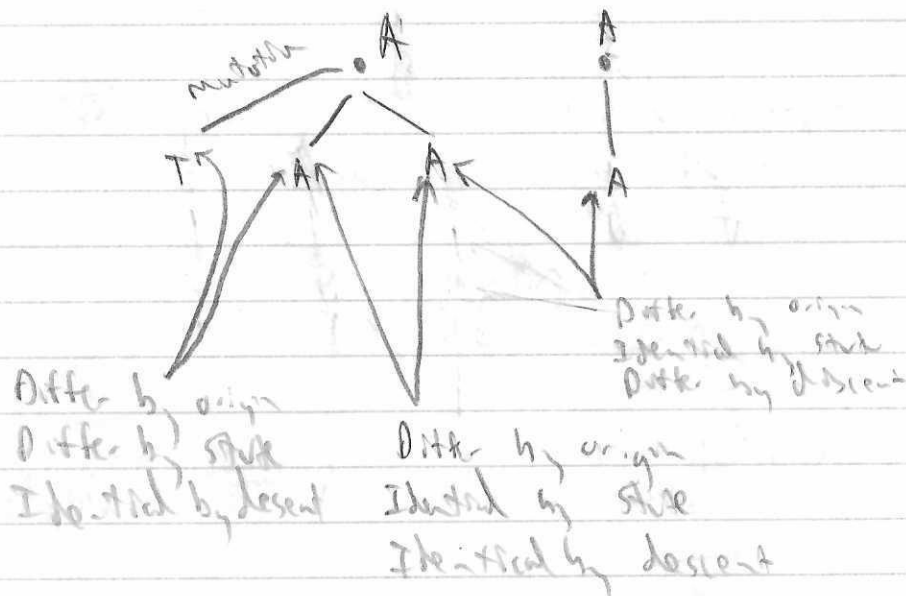 A
A
mutation
T
A
A
A
Differ by origin
Identical by state
Differ by descent
Differ by origin
Differ by state
Identical by desent
Differ by origin
Identical by state
Identical by descent